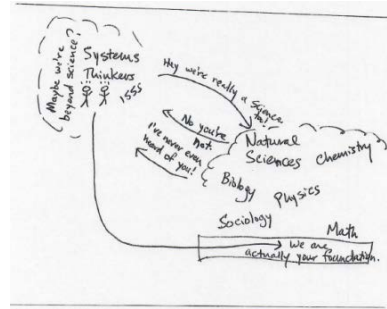 Maybe we're
beyond science?
Systems
Thinkers
ISSS
Hey we're really a science
too!
No you're
not.
I've never even
heard of you!
Natural
Sciences Chemistry
Biology
Physics
Sociology
Math
We are
actually your foundation.